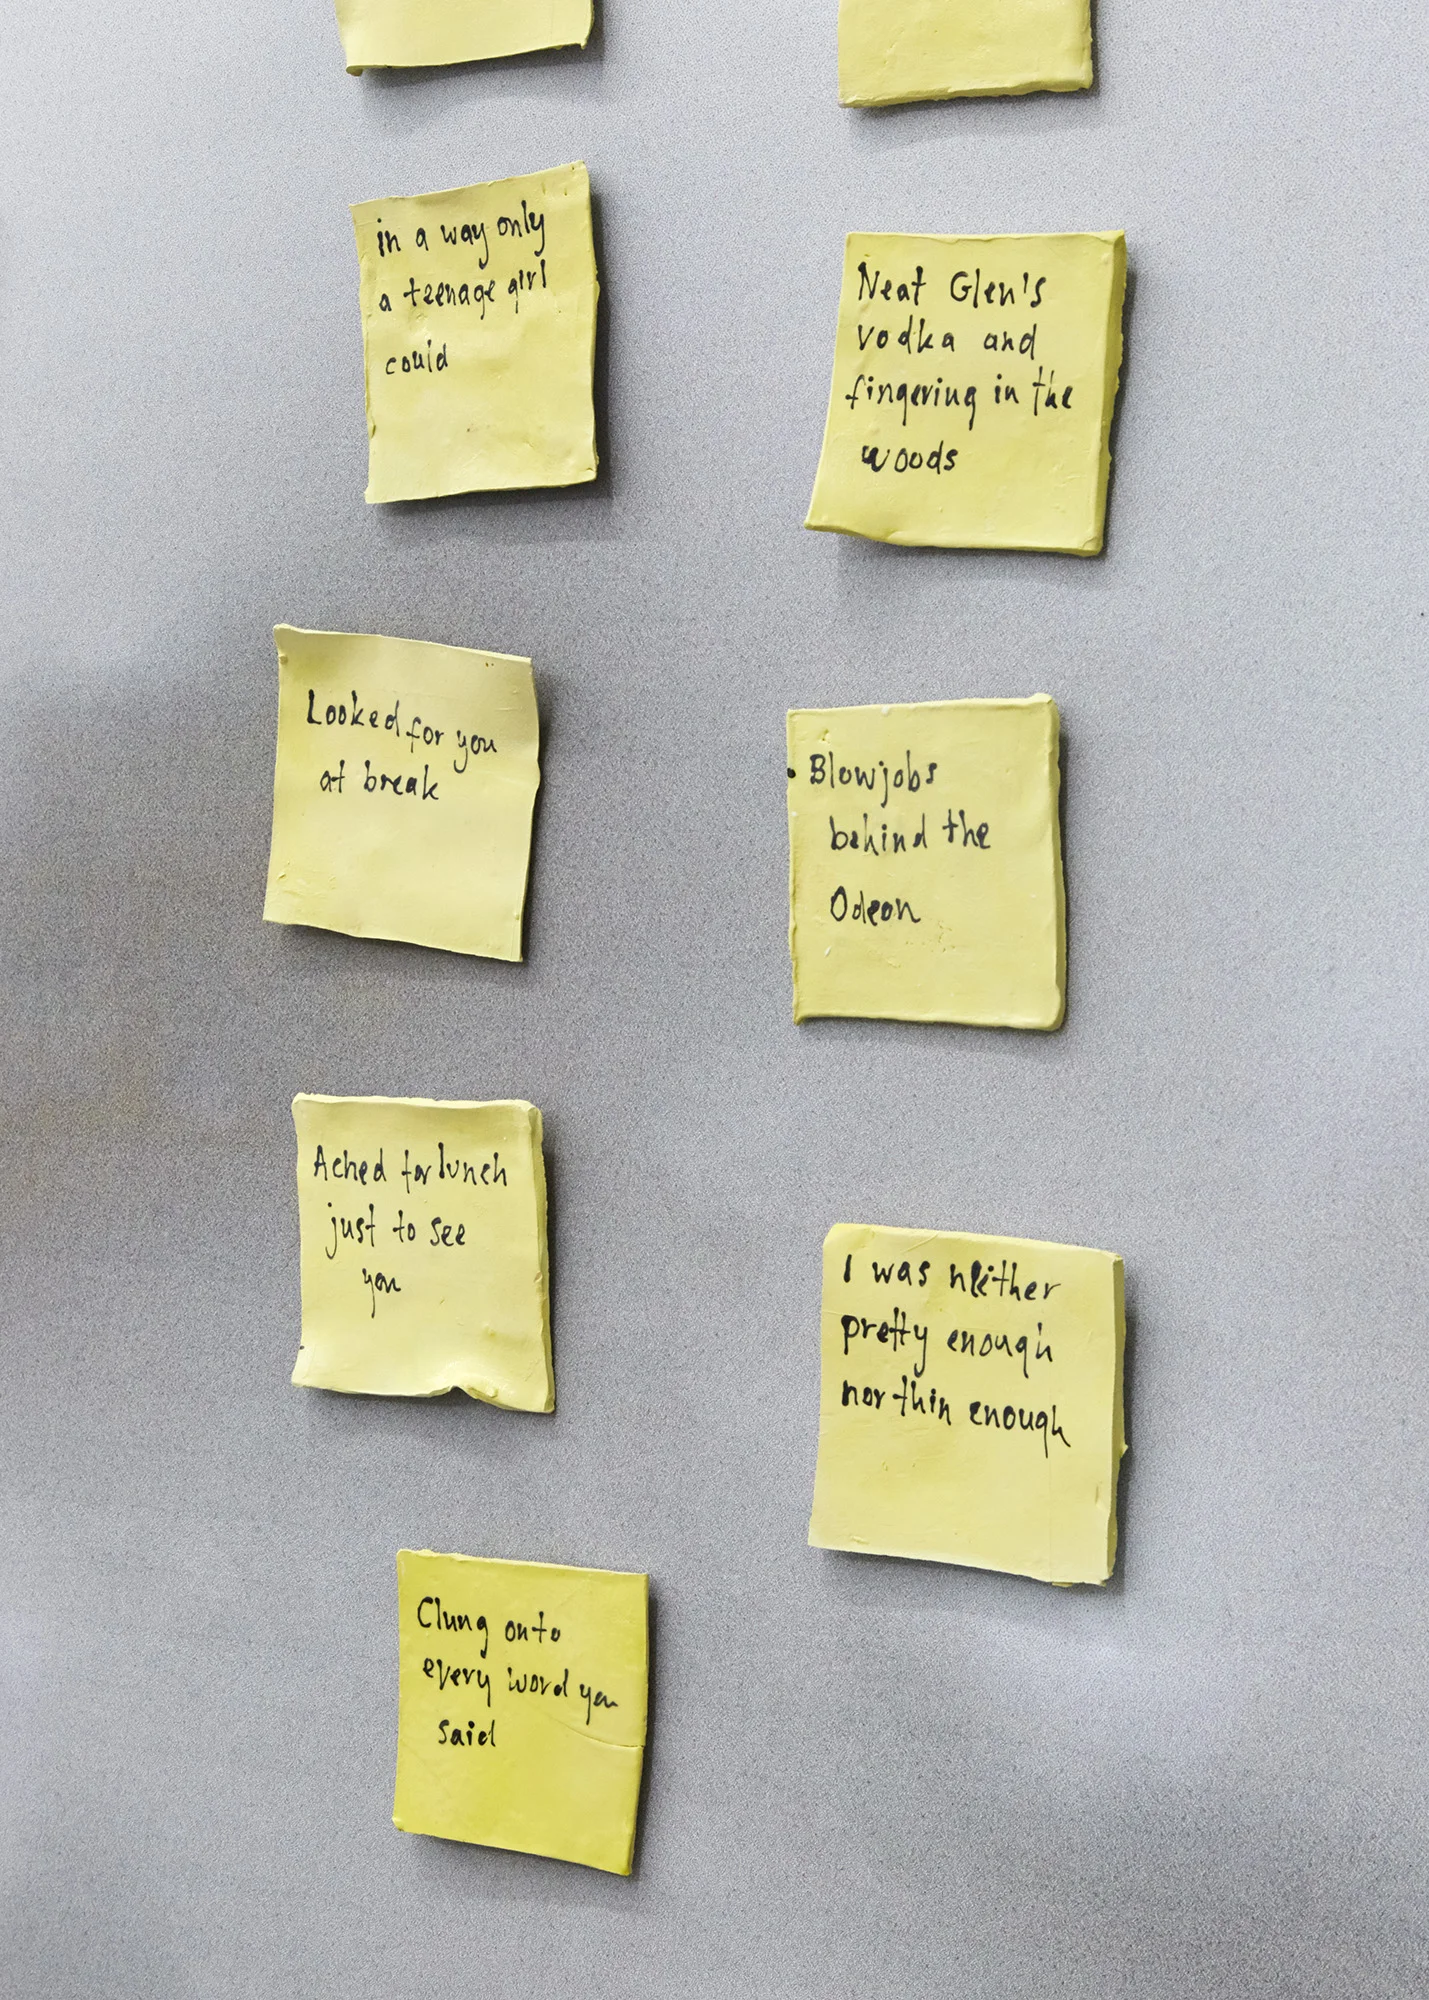 in a way only
a teenage girl
could
Looked for you
at break
Ached for lunch
just to see
you
Clung onto
every word you
said
Neat Glen's
vodka and
fingering in the
woods
Blowjobs
behind the
Odeon
I was neither
pretty enough
nor thin enough